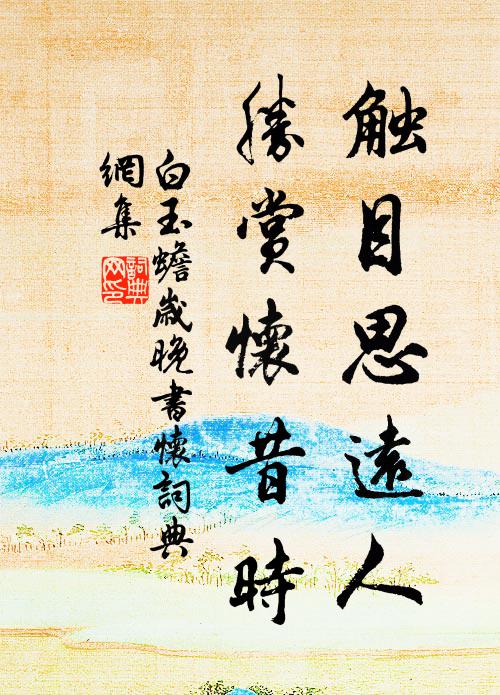 触目思遠人
勝賞懷昔時
白玉蟾歲晚書懷詞典
網集
詞典
网印